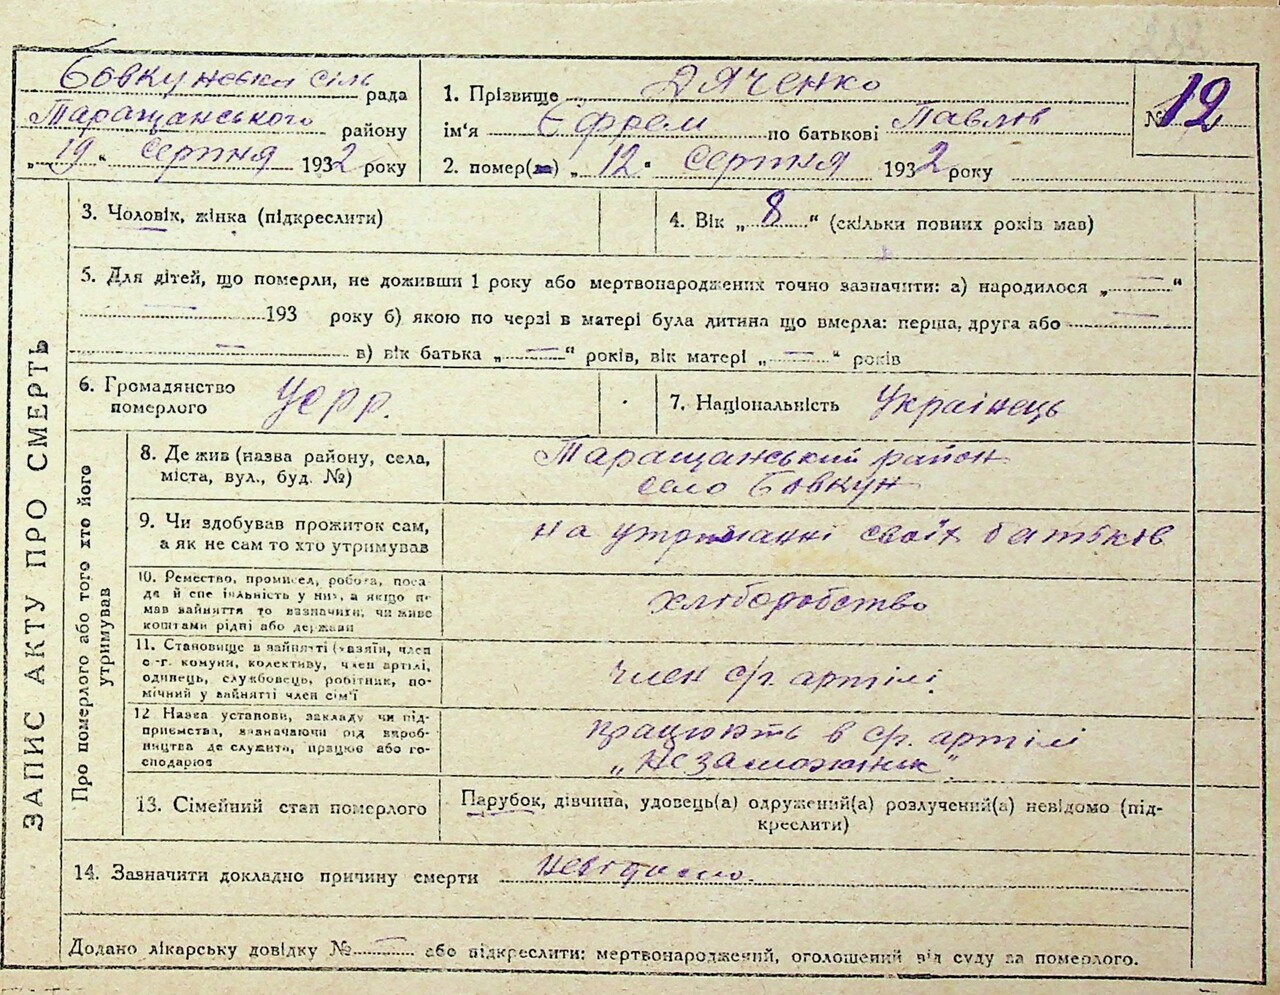 Бовкунська сіль рада
Таращанського району
„19“ серпня 1932 року
1. Прізвище Дяченко
ім'я Єфрем по батькові Павлов
№ 12
2. помер(ла) „12“ серпня 1932 року
ЗАПИС АКТУ ПРО СМЕРТЬ
3. Чоловік, жінка (підкреслити)
4. Вік „8“ (скільки повних років мав)
5. Для дітей, що померли, не доживши 1 року або мертвонароджених точно зазначити: а) народилося „—“
— 193 року б) якою по черзі в матері була дитина що вмерла: перша, друга або —
— в) вік батька „—“ років, вік матері „—“ років
6. Громадянство
померлого
УСРР.
7. Національність Українець
Про померлого або того хто його
утримував
8. Де жив (назва району, села,
міста, вул., буд. №)
Таращанський район
село Бовкун
9. Чи здобував прожиток сам,
а як не сам то хто утримував
на утриманні своїх батьків
10. Ремество, промисел, робота, поса-
да й спеціяльність у них, а якщо не
мав зайняття то зазначити, чи живе
коштами рідні або держави
хліборобство
11. Становище в зайнятті (хазяїн, член
с-г. комуни, колективу, член артілі,
одинець, службовець, робітник, по-
мічний у зайнятті член сім'ї
член с/г. артілі.
12 Назва установи, закладу чи під-
приємства, зазначаючи рід вироб-
ництва де служить, працює або го-
сподарює
працюють в с/г. артілі
„Незаможник“
13. Сімейний стан померлого
Парубок, дівчина, удовець(а) одружений(а) розлучений(а) невідомо (під-
креслити)
14. Зазначити докладно причину смерти невідомо.
Додано лікарську довідку № — або підкреслити: мертвонароджений, оголошений від суду за померлого.